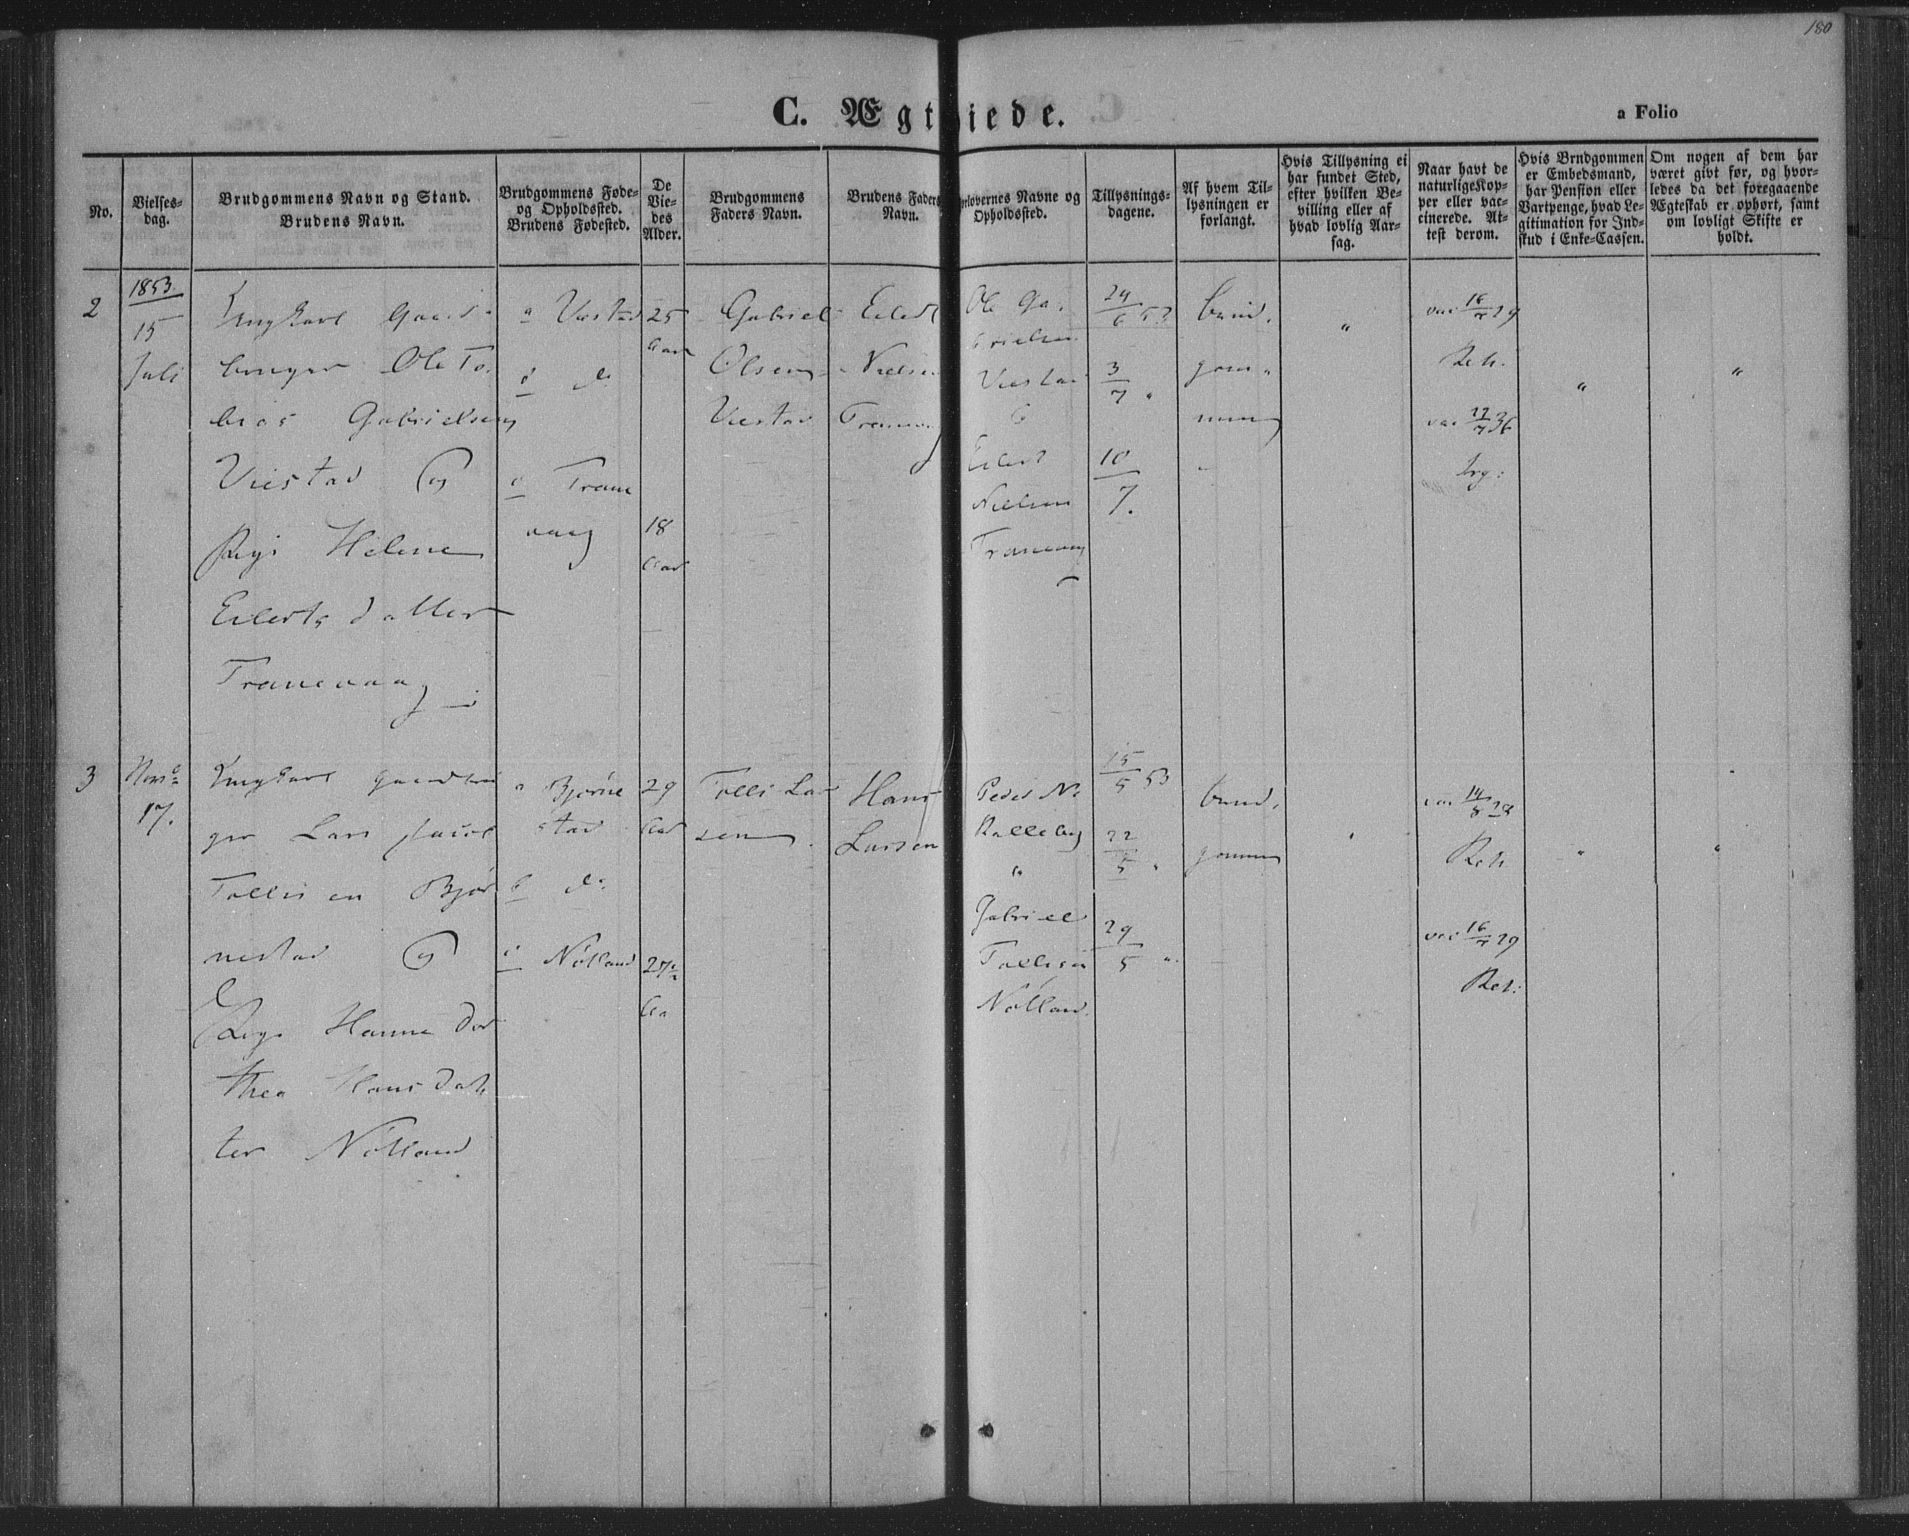 180
C. Ægtviede.
a Folio
No.
Vielses-
dag.
Brudgommens Navn og Stand.
Brudens Navn.
Brudgommens Føde-
og Opholdssted.
Brudens Fødested.
De
Vie-
des
Alder.
Brudgommens
Faders Navn.
Brudens Faders
Navn.
Forlovernes Navne og
Opholdssted.
Tillysnings-
dagene.
Af hvem Til-
lysningen er
forlangt.
Hvis Tillysning ei
har fundet Sted,
efter hvilken Be-
villing eller af
hvad lovlig Aar-
sag.
Naar havt de
naturlige Kop-
per eller vac-
cinerede. At-
test derom.
Hvis Brudgommen
er Embedsmand,
har Pension eller
Vartpenge, hvad Le-
gitimation for Ind-
skud i Enke-Cassen.
Om nogen af dem har
været givt før, og hvor-
ledes da det foregaaende
Ægteskab er ophørt, samt
om lovligt Skifte er
holdt.
2
1853.
15
Juli
Ungkarl Gaard-
bruger Ole To-
bias Gabrielsen
Viestad og
Pige Helene
Eilertsdatter
Tranevaag
a Viestad
b do
c Trane
vaag
25
Aar
18
Aar
Gabriel
Olsen
Viestad
Eilert
Nielsen
Tranevaag
Ole Ga-
brielsen
Viestad
&
Eilert
Nielsen
Tranevaag
24/6 53
3/7 "
10/7.
brud-
gom-
men
"
vac 16/7 29
Reh.
vac 27/7 36
"
"
3
Novb
17.
Ungkarl gaardbru
ger Lars Jacob
Tollisen Bjør
nestad og
Pige Hanne Dor
thea Hansdat
ter Nøtland
a Bjørne
stad
b do
c Nøtland
29
Aar
25 1/2
Aa
Tollis Lar
sen
Hans
Larsen
Peder N.
Kalleberg
&
Gabriel
Tollisen
Nøtland.
15/5 53
22/5 "
29/5 "
brud-
gommen
"
vac 14/8 28
Reh.
vac 16/7 29
Reh:
"
"